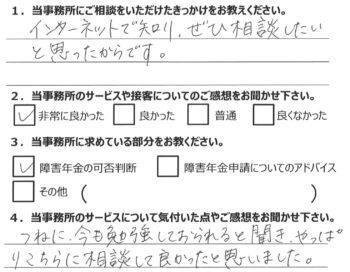 1．当事務所にご相談をいただけたきっかけをお教えください。
インターネットで知り、ぜひ相談したい
と思ったからです。
2．当事務所のサービスや接客についてのご感想をお聞かせ下さい。
☑非常に良かった □良かった □普通 □良くなかった
3．当事務所に求めている部分をお教えください。
☑障害年金の可否判断 □障害年金申請についてのアドバイス
□その他（ ）
4．当事務所のサービスについて気付いた点やご感想をお聞かせ下さい。
つねに、今も勉強しておられると聞き、やっぱ
りこちらに相談して良かったと思いました。